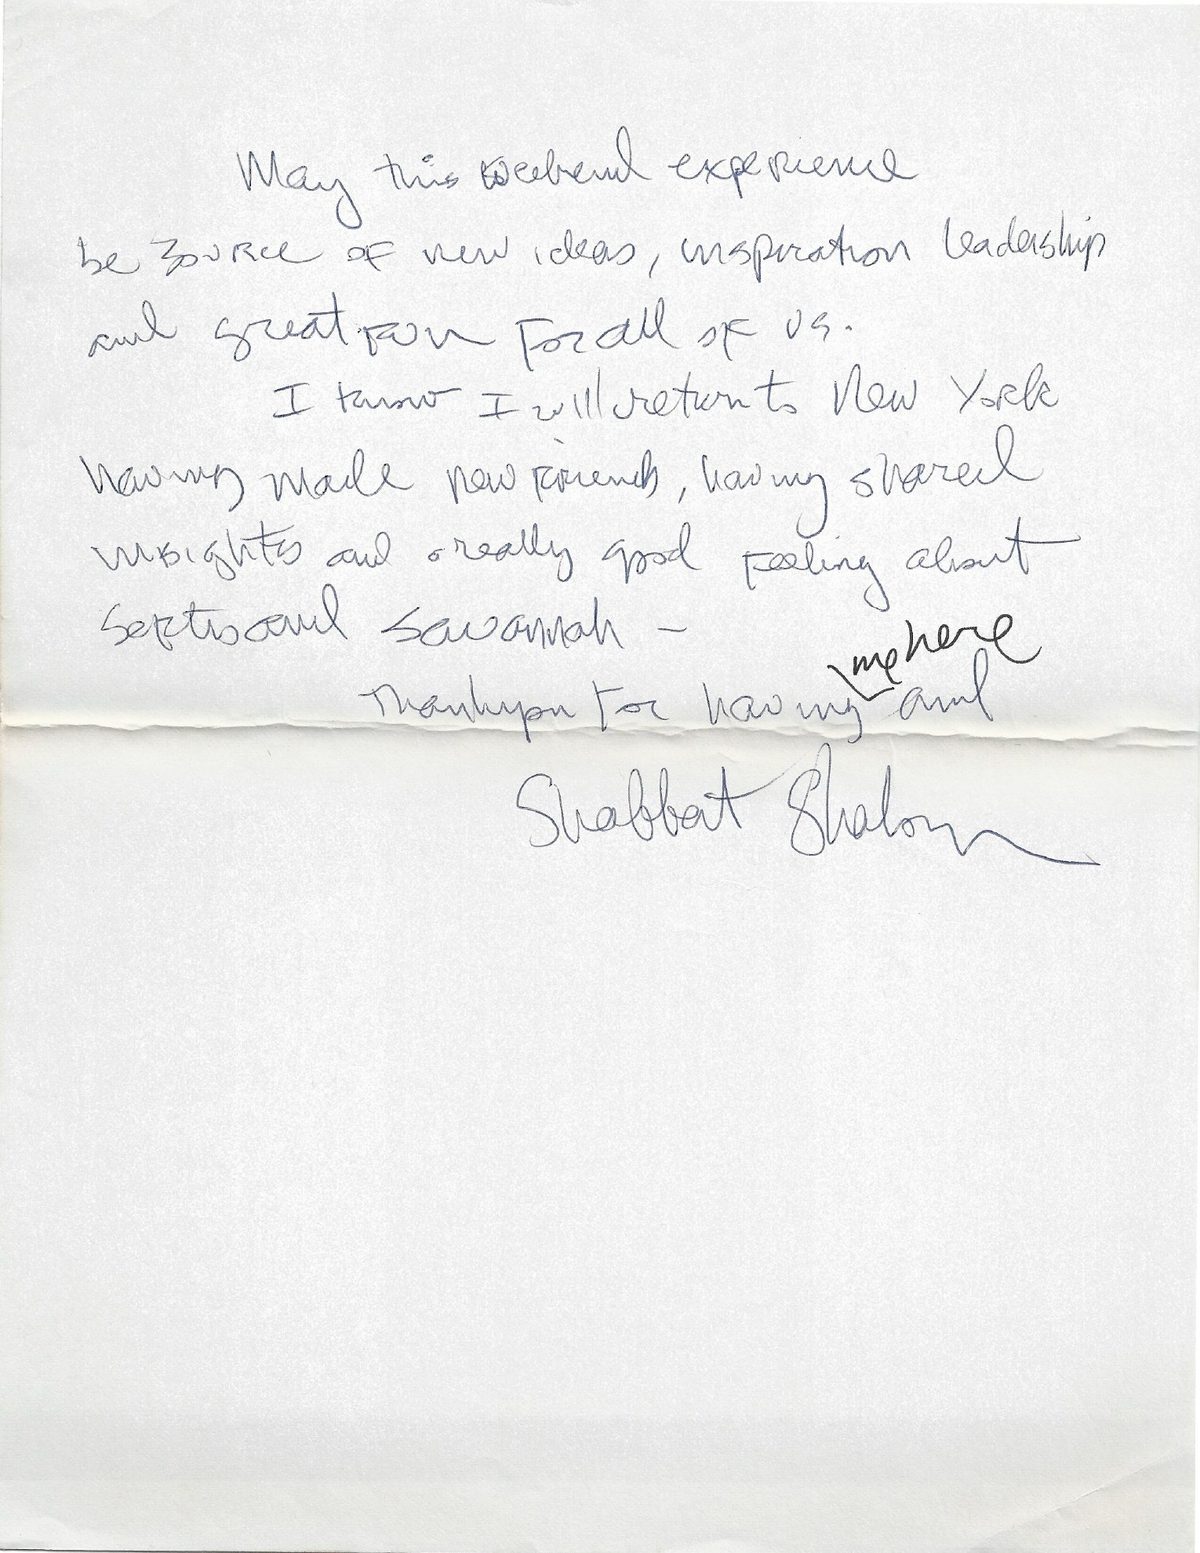 May this weekend experience
be source of new ideas, inspiration leadership
and great fun for all of us.
I know I will return to New York
having made new friends, having shared
insights and a really good feeling about
and Savannah —
me here
Thank you for having and
Shabbat Shalom